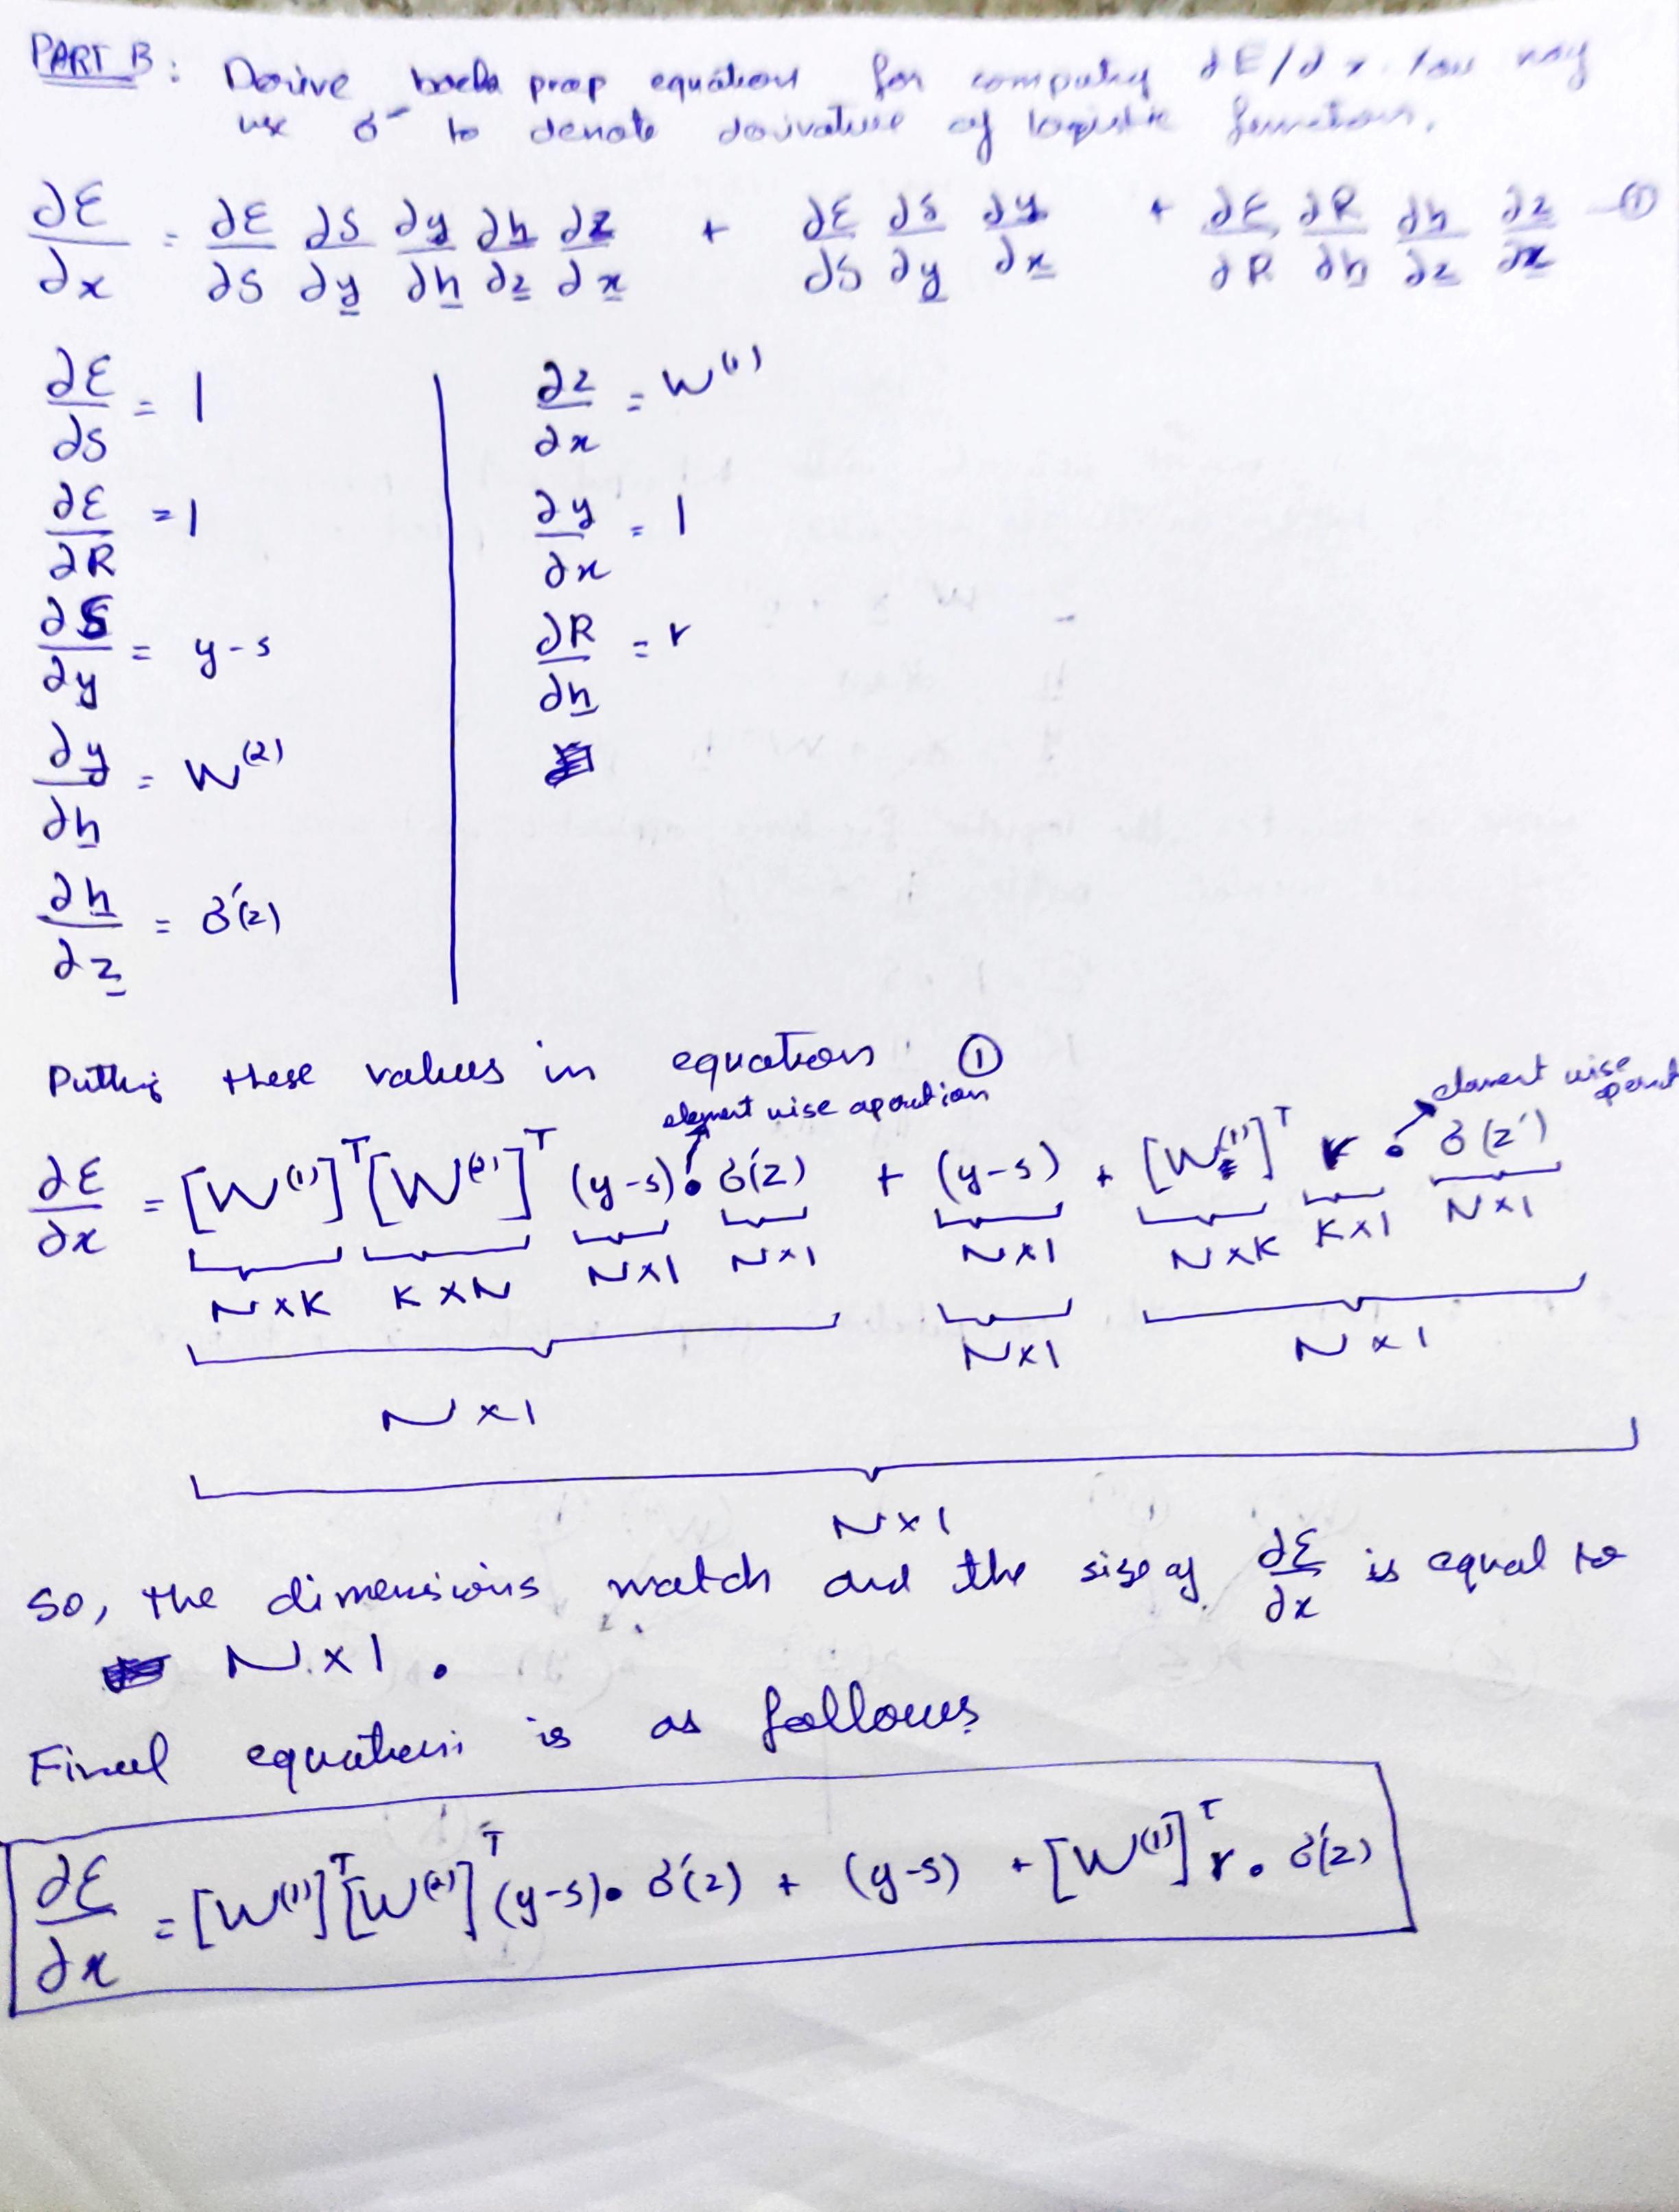 PART B: Derive back prop equation for computing ∂E/∂x. You may
use σ′ to denote derivative of logistic function.
∂ε/∂x = ∂ε/∂S ∂S/∂y ∂y/∂h ∂h/∂z ∂z/∂x + ∂ε/∂S ∂S/∂y ∂y/∂x + ∂ε/∂R ∂R/∂h ∂h/∂z ∂z/∂x —①
∂ε/∂S = 1
∂ε/∂R = 1
∂S/∂y = y-s
∂y/∂h = W^(2)
∂h/∂z = σ′(z)
∂z/∂x = W^(1)
∂y/∂x = 1
∂R/∂h = r
Putting these values in equation ①
element wise operation
element wise
∂ε/∂x = [W^(1)]^T [W^(2)]^T (y-s) • σ′(z) + (y-s) + [W^(1)]^T r • σ(z′)
N×K K×N N×1 N×1 N×1 N×K K×1 N×1
N×1 N×1 N×1
N×1
So, the dimensions match and the size of ∂ε/∂x is equal to
N×1.
Final equation is as follows
∂ε/∂x = [W^(1)]^T [W^(2)]^T (y-s) • σ′(z) + (y-s) + [W^(1)]^T r • σ′(z)